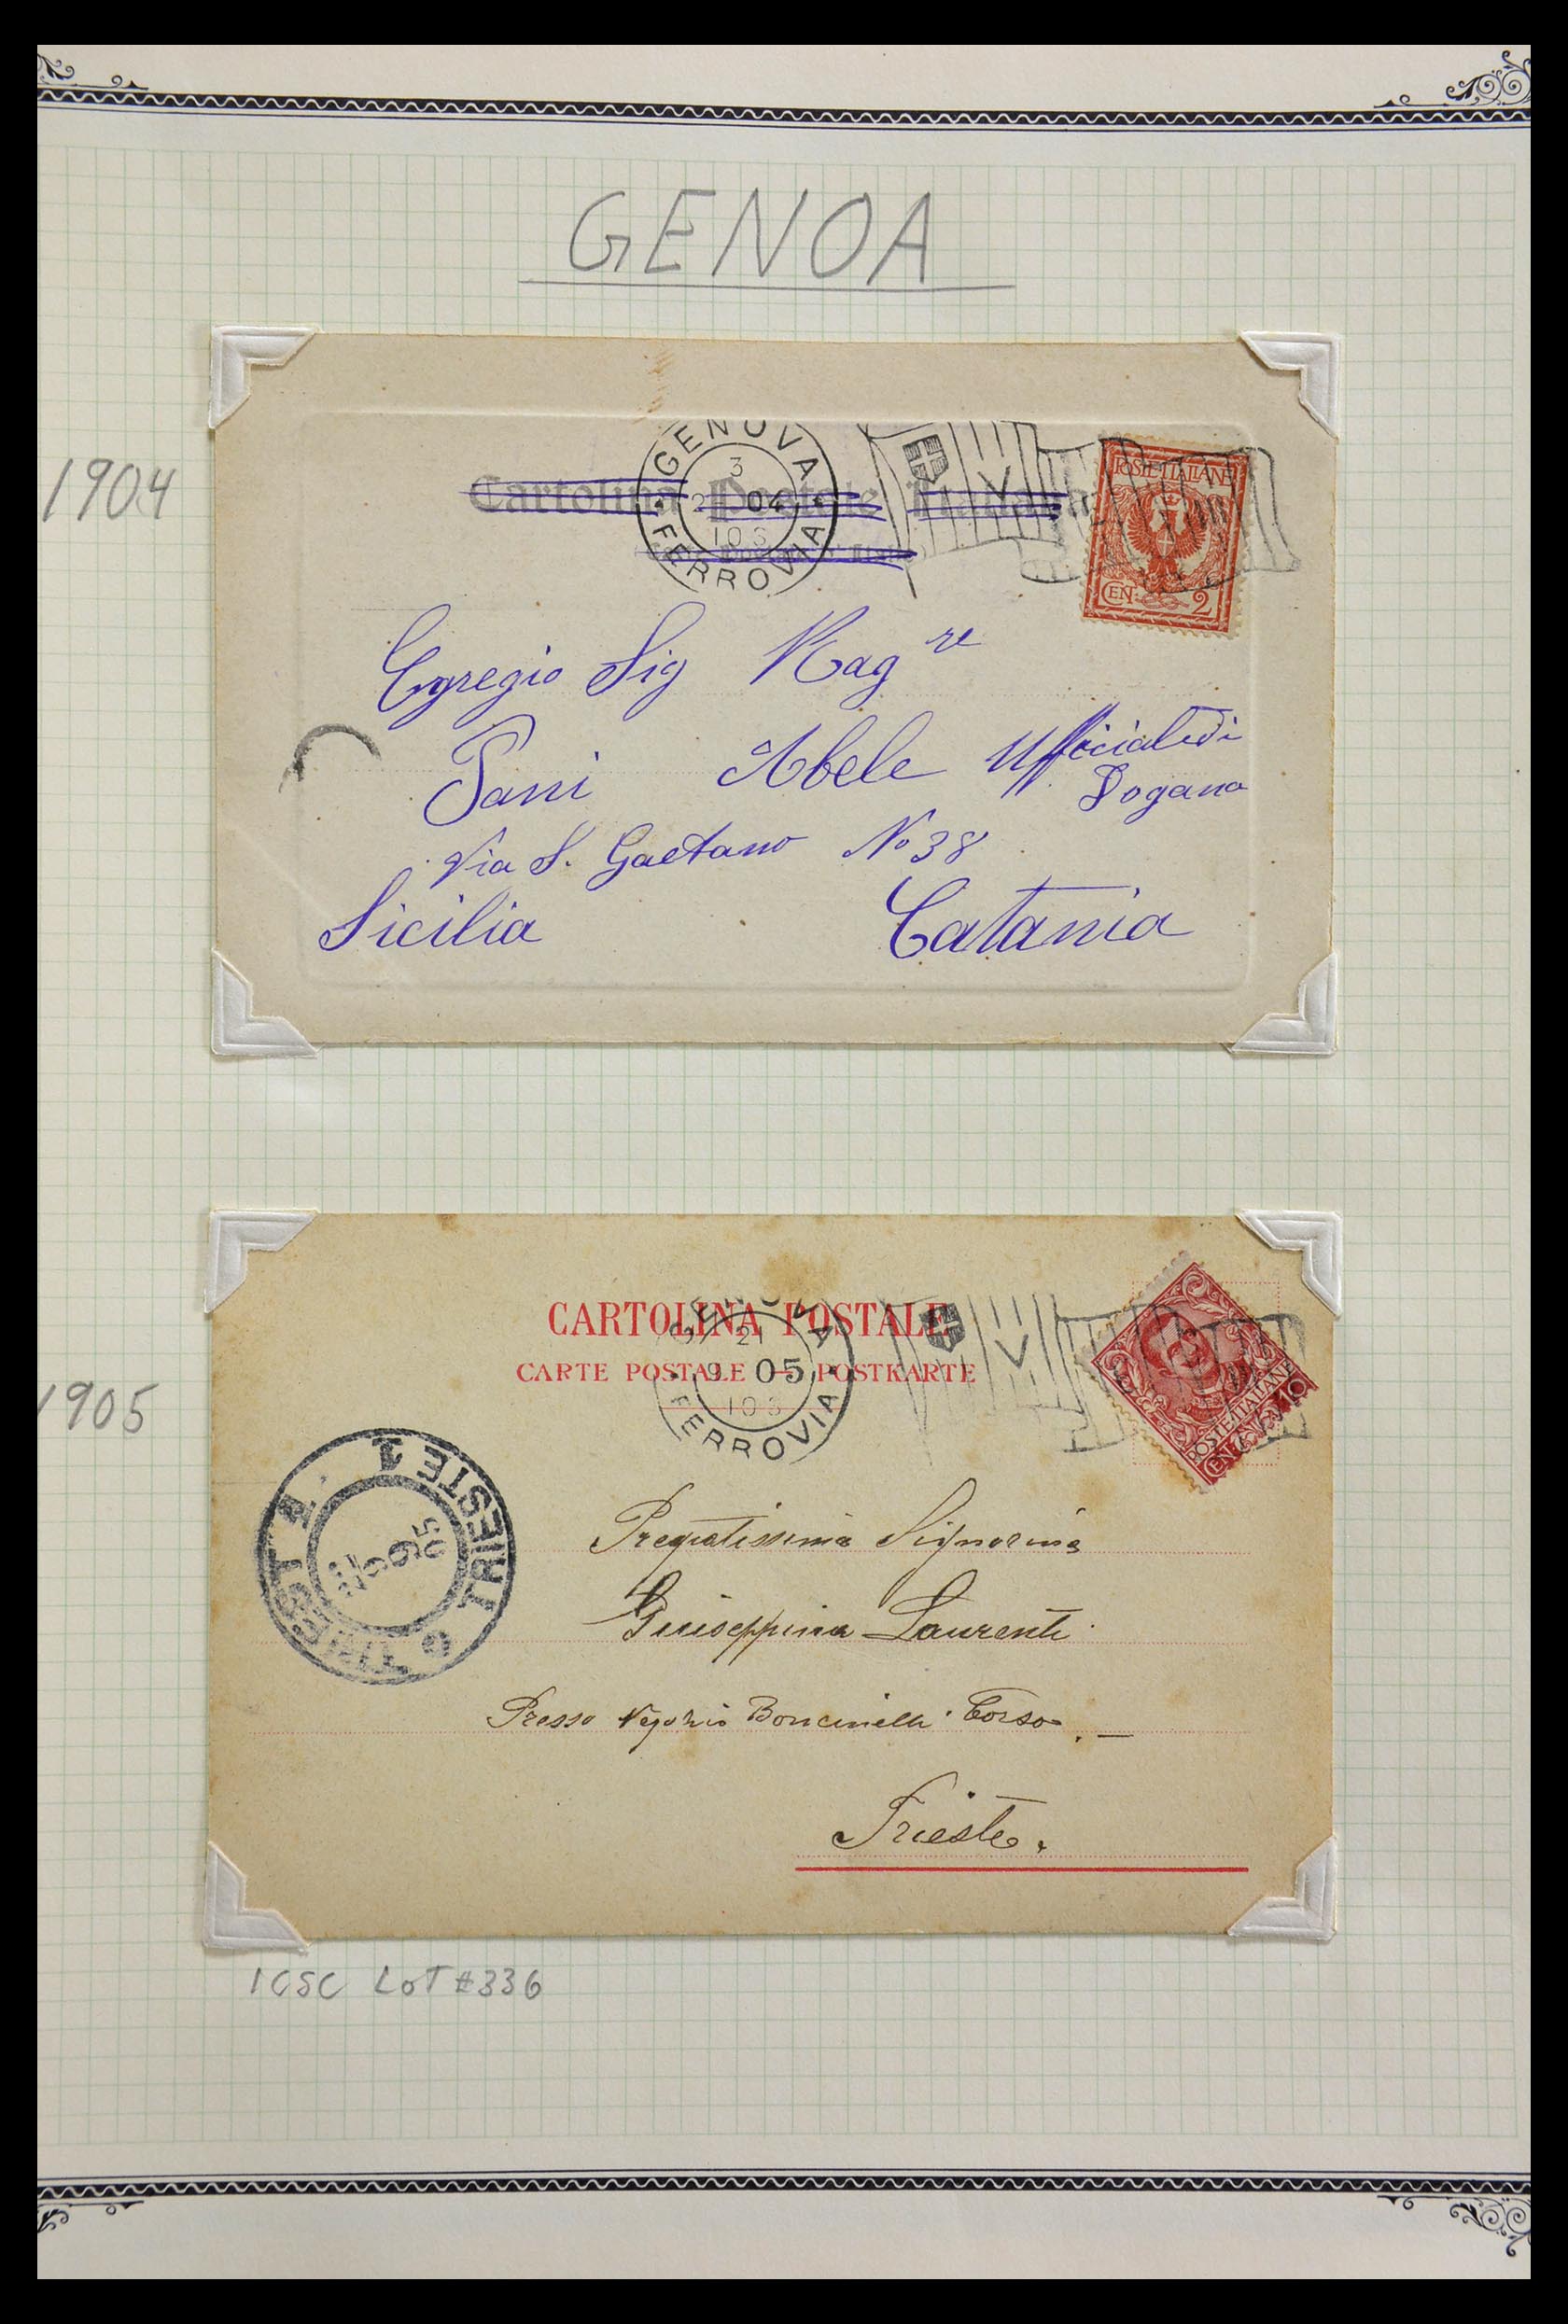 GENOA
1904
GENOVA
3
2 04
10 S
FERROVIA
Cartolina Postale Italiana
POSTE ITALIANE
CEN. 2
Egregio Sig Rag re
Sani Abele Ufficiale di
Dogana
Via S. Gaetano No 38
Sicilia Catania
1905
CARTOLINA POSTALE
CARTE POSTALE — POSTKARTE
GENOVA
21
9 05
10 S
FERROVIA
POSTE ITALIANE
CENT. 10
TRIESTE 1
TRIEST 1
Pregiatissima Signorina
Giuseppina Laurenti
Presso Negozio Boncinelli Corso. —
Trieste.
ICSC LOT #336